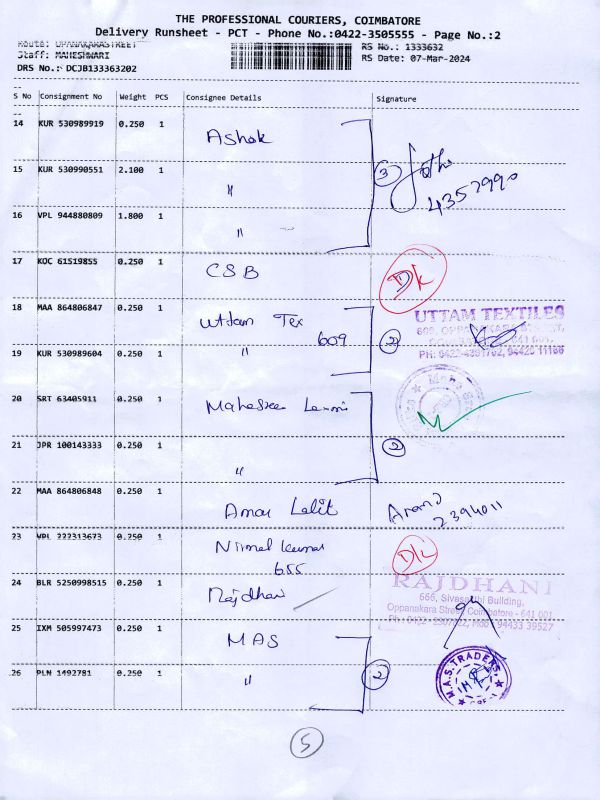 THE PROFESSIONAL COURIERS, COIMBATORE
Delivery Runsheet - PCT - Phone No.:0422-3505555 - Page No.:2
Route: OPANAKARASTREET
Staff: MAHESHWARI
DRS No.: DCJB133363202
RS No.: 1333632
RS Date: 07-Mar-2024
S No Consignment No Weight PCS Consignee Details Signature
14 KUR 530989919 0.250 1 Ashok
15 KUR 530990551 2.100 1 "
3
4352990
16 VPL 944880809 1.800 1 "
17 KOC 61519855 0.250 1 CSB DK
18 MAA 864806847 0.250 1 Uttam Tex
609
2
UTTAM TEXTILES
19 KUR 530989604 0.250 1 "
20 SRT 63405911 0.250 1
21 JPR 100143333 0.250 1 "
2
22 MAA 864806848 0.250 1 Amar Lalit Anand
2394011
23 VPL 222313673 0.250 1 Nirmal Kumar
655
24 BLR 5250998515 0.250 1 Rajdhani
RAJDHANI
666, Sivasakthi Building,
Oppanakara Street, Coimbatore - 641 001
25 IXM 505997473 0.250 1 MAS
26 PLN 1492781 0.250 1 "
2
M.A.S. TRADERS
5